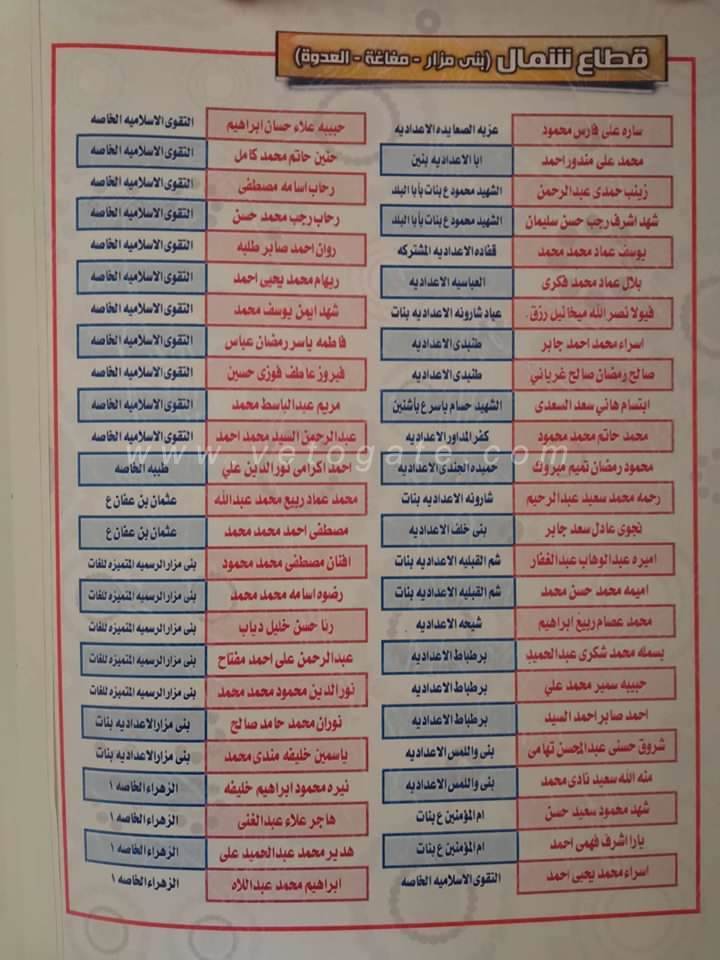 قطاع شمال (بنى مزار - مغاغة - العدوة)
ساره على فارس محمود عزبه الصعايده الاعداديه
محمد على مندور احمد ابا الاعداديه بنين
زينب حمدى عبدالرحمن الشهيد محمود ع بنات بأبا البلد
شهد اشرف رجب حسن سليمان الشهيد محمود ع بنات بأبا البلد
يوسف عماد محمد محمد قفاده الاعداديه المشتركه
بلال عماد محمد فكرى العباسيه الاعداديه
فيولا نصر الله ميخائيل رزق عباد شارونه الاعداديه بنات
اسراء محمد احمد جابر طنبدى الاعداديه
صالح رمضان صالح غرياني طنبدى الاعداديه
ابتسام هاني سعد السعدى الشهيد حسام ياسر ع بأشنين
محمد حاتم محمد محمود كفر المداور الاعداديه
محمود رمضان تميم مبروك حميده الجندى الاعداديه
رحمه محمد سعيد عبدالرحيم شارونه الاعداديه بنات
نجوى عادل سعد جابر بنى خلف الاعداديه
اميره عبدالوهاب عبدالغفار شم القبليه الاعداديه بنات
اميمه محمد حسن محمد شم القبليه الاعداديه بنات
محمد عصام ربيع ابراهيم شيحه الاعداديه
بسمله محمد شكرى عبدالحميد برطباط الاعداديه
حبيبه سمير محمد علي برطباط الاعداديه
احمد صابر احمد السيد برطباط الاعداديه
شروق حسنى عبدالمحسن تهامى بنى واللمس الاعداديه
منه الله سعيد نادى محمد بنى واللمس الاعداديه
شهد محمود سعيد حسن ام المؤمنين ع بنات
يارا اشرف فهمى احمد ام المؤمنين ع بنات
اسراء محمد يحيى احمد التقوى الاسلاميه الخاصه
حبيبه علاء حسان ابراهيم التقوى الاسلاميه الخاصه
حنين حاتم محمد كامل التقوى الاسلاميه الخاصه
رحاب اسامه مصطفى التقوى الاسلاميه الخاصه
رحاب رجب محمد حسن التقوى الاسلاميه الخاصه
روان احمد صابر طلبه التقوى الاسلاميه الخاصه
ريهام محمد يحيى احمد التقوى الاسلاميه الخاصه
شهد ايمن يوسف محمد التقوى الاسلاميه الخاصه
فاطمه ياسر رمضان عباس التقوى الاسلاميه الخاصه
فيروز عاطف فوزى حسين التقوى الاسلاميه الخاصه
مريم عبدالباسط محمد التقوى الاسلاميه الخاصه
عبدالرحمن السيد محمد احمد التقوى الاسلاميه الخاصه
احمد اكرامى نورالدين علي طيبه الخاصه
محمد عماد ربيع محمد عبدالله عثمان بن عفان ع
مصطفى احمد محمد محمد عثمان بن عفان ع
افنان مصطفى محمد محمود بنى مزار الرسميه المتميزه للغات
رضوه اسامه محمد محمد بنى مزار الرسميه المتميزه للغات
رنا حسن خليل دياب بنى مزار الرسميه المتميزه للغات
عبدالرحمن على احمد مفتاح بنى مزار الرسميه المتميزه للغات
نورالدين محمود محمد محمد بنى مزار الرسميه المتميزه للغات
نوران محمد حامد صالح بنى مزار الاعداديه بنات
ياسمين خليفه مندى محمد بنى مزار الاعداديه بنات
نيره محمود ابراهيم خليفه الزهراء الخاصه ١
هاجر علاء عبدالغنى الزهراء الخاصه ١
هدير محمد عبدالحميد على الزهراء الخاصه ١
ابراهيم محمد عبداللاه الزهراء الخاصه ١
www.vetogate.com